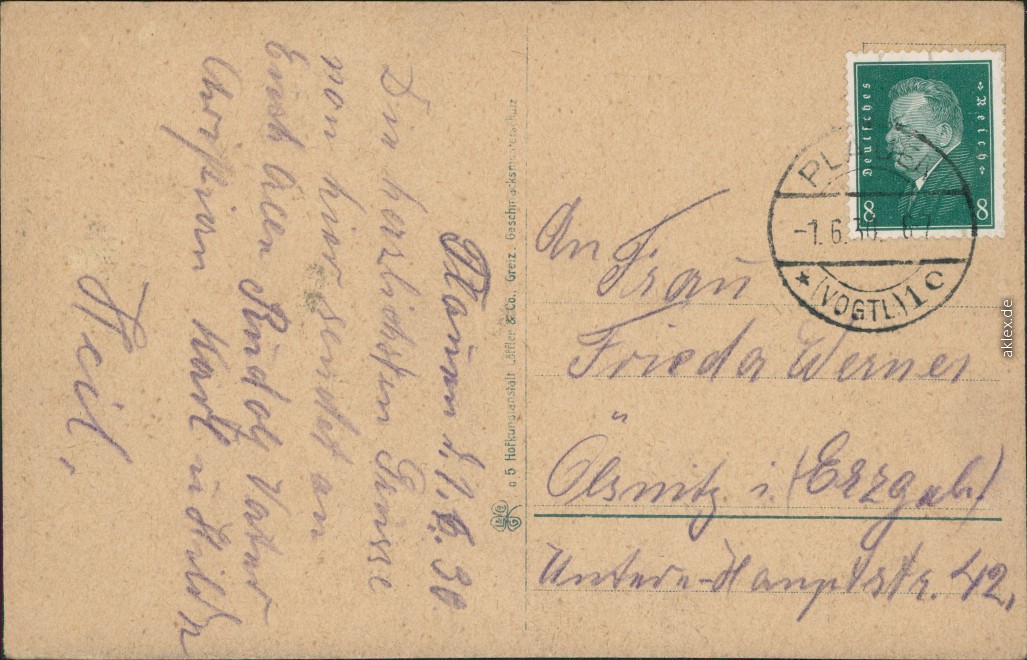 Plauen d. 1.6.30.
Die herzlichsten Grüsse
von hier sendet an
Euch allen Rudolf Vater
Karl u.
Heil.
o 5 Hofkunstanstalt Löffler & Co., Greiz. Geschmacksmusterschutz
Deutsches Reich
8 8
PLAUEN
-1.6.30.
* (VOGTL) 1 c
An
Frau
Frieda Werner
Ölsnitz i. (Erzgeb.)
Untere-Hauptstr. 42.
aklex.de